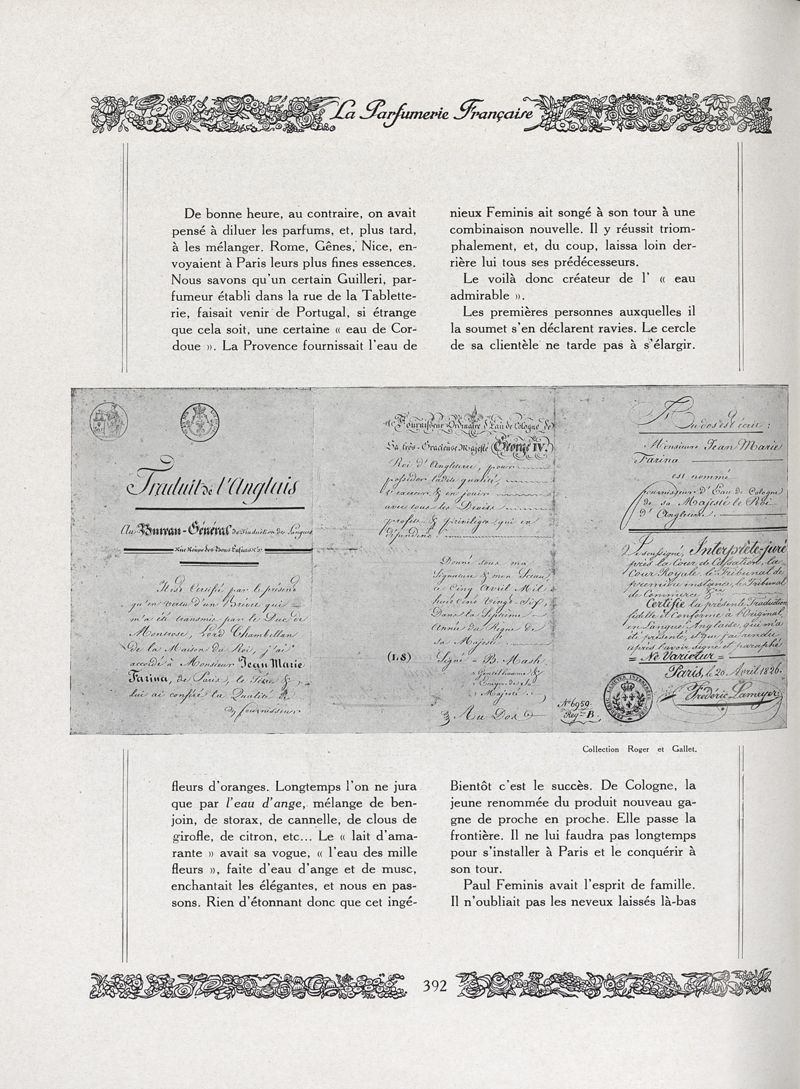 La Parfumerie Française
De bonne heure, au contraire, on avait
pensé à diluer les parfums, et, plus tard,
à les mélanger. Rome, Gênes, Nice, en-
voyaient à Paris leurs plus fines essences.
Nous savons qu'un certain Guilleri, par-
fumeur établi dans la rue de la Tablette-
rie, faisait venir de Portugal, si étrange
que cela soit, une certaine « eau de Cor-
doue ». La Provence fournissait l'eau de
nieux Feminis ait songé à son tour à une
combinaison nouvelle. Il y réussit triom-
phalement, et, du coup, laissa loin der-
rière lui tous ses prédécesseurs.
Le voilà donc créateur de l' « eau
admirable ».
Les premières personnes auxquelles il
la soumet s'en déclarent ravies. Le cercle
de sa clientèle ne tarde pas à s'élargir.
Traduit de l'Anglais
Au Bureau-Général de Traduction des Langues
Rue Neuve des Bons Enfans
Il est Certifié par le présent
qu'en vertu d'un Brevet qui
m'a été transmis par le Duc de
Montrose, Lord Chambellan
de la Maison du Roi, j'ai
accordé à Monsieur Jean Marie
Farina, de Paris, le Titre &
lui ai conféré la Qualité de
fournisseur
Fournisseur Ordinaire d'Eau de Cologne de
Sa très-Gracieuse Majesté George IV.
Roi d'Angleterre, pour
posséder ladite qualité,
l'exercer & en jouir
avec tous les Droits
profits & privilèges qui en
dépendent
Donné sous ma
Signature & mon Sceau,
ce Cinq Avril Mil
huit Cent Vingt-Six,
Dans la Septième
Année du Règne de
Sa Majesté
(LS) Signé = B. Mash.
Gentilhomme &
Majesté
Au Dos
Au dos est écrit :
Monsieur Jean Marie
Farina
est nommé
fournisseur d'Eau de Cologne
de sa Majesté le Roi
d'Angleterre.
Je soussigné, Interprète-juré
près la Cour de Cassation, la
Cour Royale, le Tribunal de
première instance, le Tribunal
de Commerce &
Certifie la présente Traduction
fidelle et Conforme à l'Original
en Langue Anglaise, qui m'a
été présenté, et que j'ai rendu
après l'avoir signé et paraphé
= Ne Varietur =
Paris, le 20. Avril 1826.
Frédéric Lameyer
No 6959
Reg. B
Collection Roger et Gallet.
fleurs d'oranges. Longtemps l'on ne jura
que par l'eau d'ange, mélange de ben-
join, de storax, de cannelle, de clous de
girofle, de citron, etc... Le « lait d'ama-
rante » avait sa vogue, « l'eau des mille
fleurs », faite d'eau d'ange et de musc,
enchantait les élégantes, et nous en pas-
sons. Rien d'étonnant donc que cet ingé-
Bientôt c'est le succès. De Cologne, la
jeune renommée du produit nouveau ga-
gne de proche en proche. Elle passe la
frontière. Il ne lui faudra pas longtemps
pour s'installer à Paris et le conquérir à
son tour.
Paul Feminis avait l'esprit de famille.
Il n'oubliait pas les neveux laissés là-bas
392